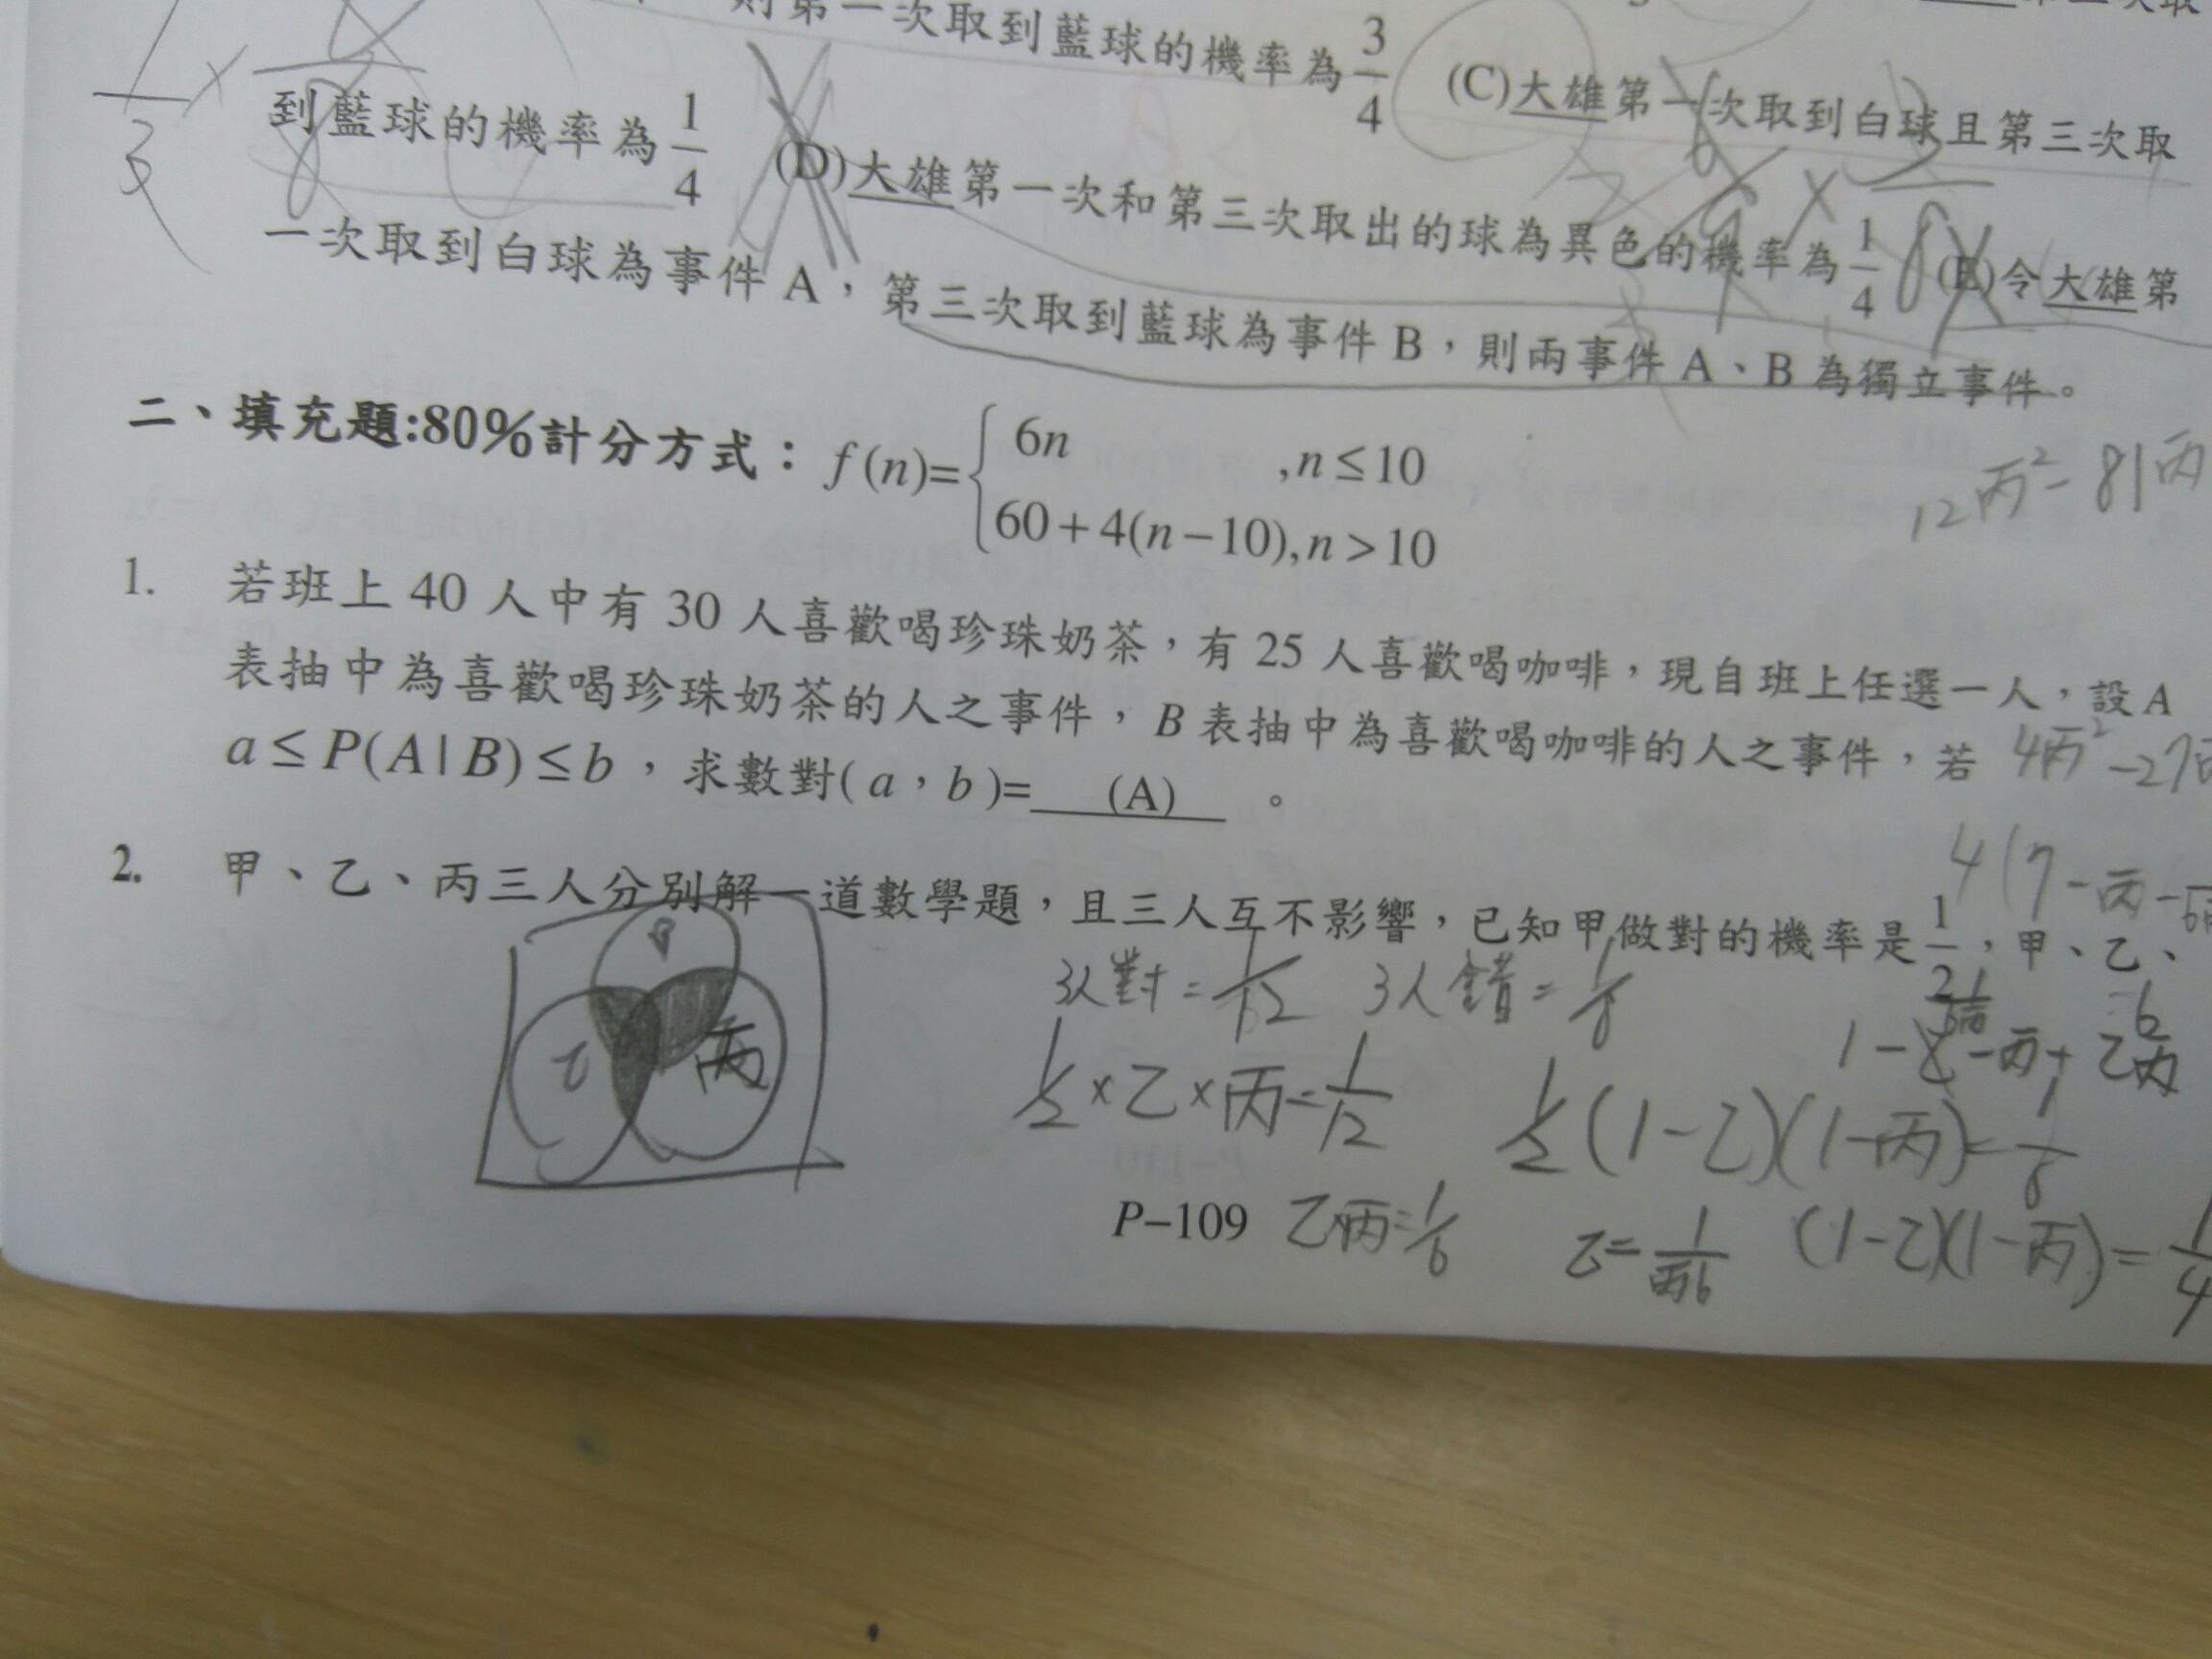 則第一次取到藍球的機率為 3/4 (C)大雄第一次取到白球且第三次取
到藍球的機率為 1/4 (D)大雄第一次和第三次取出的球為異色的機率為 1/4 (E)令大雄第
一次取到白球為事件 A，第三次取到藍球為事件 B，則兩事件 A、B 為獨立事件。
二、填充題:80%計分方式： f(n)={6n ,n≤10
60+4(n−10),n>10
12丙²-81丙
1. 若班上 40 人中有 30 人喜歡喝珍珠奶茶，有 25 人喜歡喝咖啡，現自班上任選一人，設 A
表抽中為喜歡喝珍珠奶茶的人之事件，B 表抽中為喜歡喝咖啡的人之事件，若
a≤P(A|B)≤b，求數對(a，b)= (A) 。
4丙²-27丙
2. 甲、乙、丙三人分別解一道數學題，且三人互不影響，已知甲做對的機率是 1/2，甲、乙、
乙 丙
3人對=1/12 3人錯=1/8
1/2×乙×丙=1/12 1/2(1-乙)(1-丙)=1/8
P−109 乙丙=1/6 乙=1/丙6 (1-乙)(1-丙)=1/4